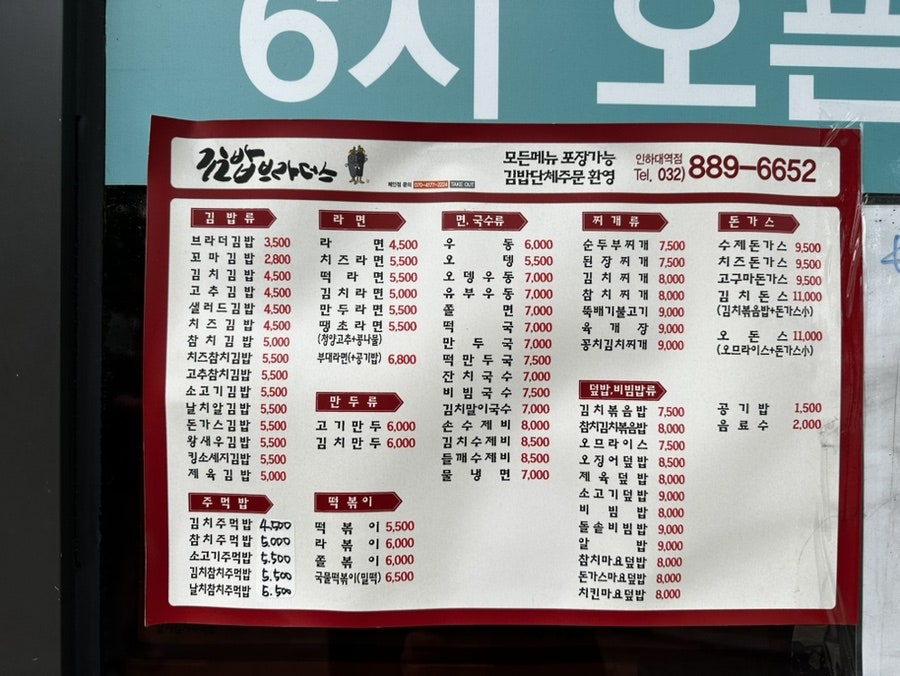 6시 오픈
김밥브라더스
체인점 문의 070-4077-2224 TAKE OUT
모든메뉴 포장가능
김밥단체주문 환영
인하대역점
Tel. 032) 889-6652
김밥류
브라더김밥 3,500
꼬마김밥 2,800
김치김밥 4,500
고추김밥 4,500
샐러드김밥 4,500
치즈김밥 4,500
참치김밥 5,000
치즈참치김밥 5,500
고추참치김밥 5,500
소고기김밥 5,500
날치알김밥 5,500
돈가스김밥 5,500
왕새우김밥 5,500
킹소세지김밥 5,500
제육김밥 5,000
주먹밥
김치주먹밥 4.500
참치주먹밥 5.000
소고기주먹밥 5.500
김치참치주먹밥 5.500
날치참치주먹밥 5.500
라면
라면 4,500
치즈라면 5,500
떡라면 5,500
김치라면 5,000
만두라면 5,500
땡초라면 5,500
(청양고추+콩나물)
부대라면(+공기밥) 6,800
만두류
고기만두 6,000
김치만두 6,000
떡볶이
떡볶이 5,500
라볶이 6,000
쫄볶이 6,000
국물떡볶이(밀떡) 6,500
면.국수류
우동 6,000
오뎅 5,500
오뎅우동 7,000
유부우동 7,000
쫄면 7,000
떡국 7,000
만두국 7,000
떡만두국 7,500
잔치국수 7,000
비빔국수 7,500
김치말이국수 7,000
손수제비 8,000
김치수제비 8,500
들깨수제비 8,500
물냉면 7,000
찌개류
순두부찌개 7,500
된장찌개 7,500
김치찌개 8,000
참치찌개 8,000
뚝배기불고기 9,000
육개장 9,000
꽁치김치찌개 9,000
덮밥,비빔밥류
김치볶음밥 7,500
참치김치볶음밥 8,000
오므라이스 7,500
오징어덮밥 8,500
제육덮밥 8,000
소고기덮밥 9,000
비빔밥 8,000
돌솥비빔밥 9,000
알밥 9,000
참치마요덮밥 8,000
돈가스마요덮밥 8,000
치킨마요덮밥 8,000
돈가스
수제돈가스 9,500
치즈돈가스 9,500
고구마돈가스 9,500
김치돈스 11,000
(김치볶음밥+돈가스小)
오돈스 11,000
(오므라이스+돈가스小)
공기밥 1,500
음료수 2,000